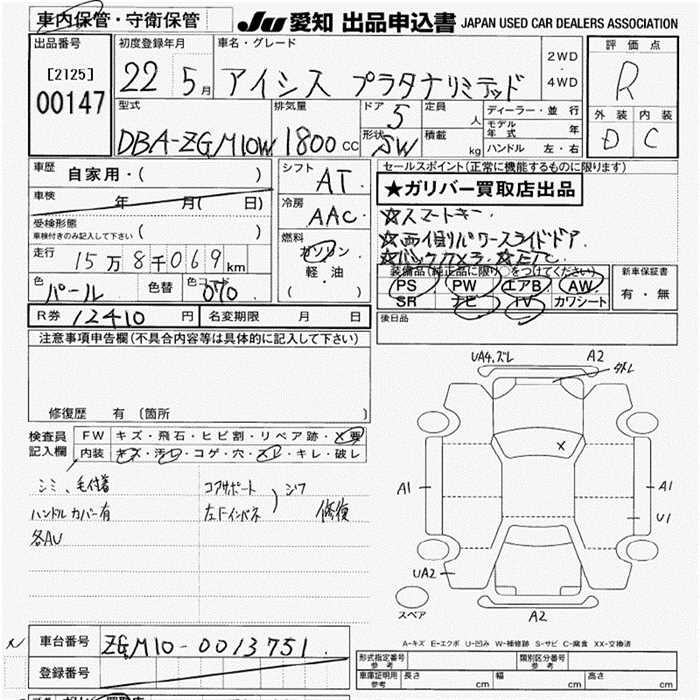 車内保管・守衛保管 JU 愛知 出品申込書 JAPAN USED CAR DEALERS ASSOCIATION
出品番号 初度登録年月 車名・グレード 評価点
[2125] 22 5月 アイシス プラタナリミテッド 2WD・4WD R
00147
型式 排気量 ドア 5 定員 人 ディーラー・並行 外装 内装
モデル年式 年
DBA-ZGM10W 1800cc 形状 SW 積載 kg ハンドル 左・右 D C
車歴 自家用・( ) シフト AT セールスポイント(正常に機能するものに限ります)
車検 年 月( 日) 冷房 AAC ★ガリバー買取店出品
☆スマートキー.
受検形態 車検付きのみ記入して下さい( ) 燃料 ガソリン・軽・油・( )
☆両側パワースライドドア.
☆バックカメラ ☆ETC
走行 15万8千069km
装備品(純正品に限り○をつけてください) 新車保証書
色 パール 色替 色コード 070 PS PW エアB AW 有・無
SR ナビ TV カワシート
R券 12410円 名変期限 月 日 後日品
注意事項申告欄(不具合内容等は具体的に記入して下さい)
修復歴 有 (箇所 )
検査員記入欄 FW キズ・飛石・ヒビ割・リペア跡・X要
内装 キズ・汚れ・コゲ・穴・スレ・キレ・破レ
シミ、毛付着 コアサポート シワ
ハンドルカバー有 左Fインパネ 修復
各AU
UA4.ズレ A2
外レ
X
A1 A1
U1
UA2
スペア A2
A-キズ E-エクボ U-凹み W-補修跡 S-サビ C-腐食 XX-交換済
車台番号 ZGM10-0013751.
登録番号
形式指定番号 参考 類別区分番号 参考
車庫証明用 参考 長さ cm 幅 cm 高さ cm